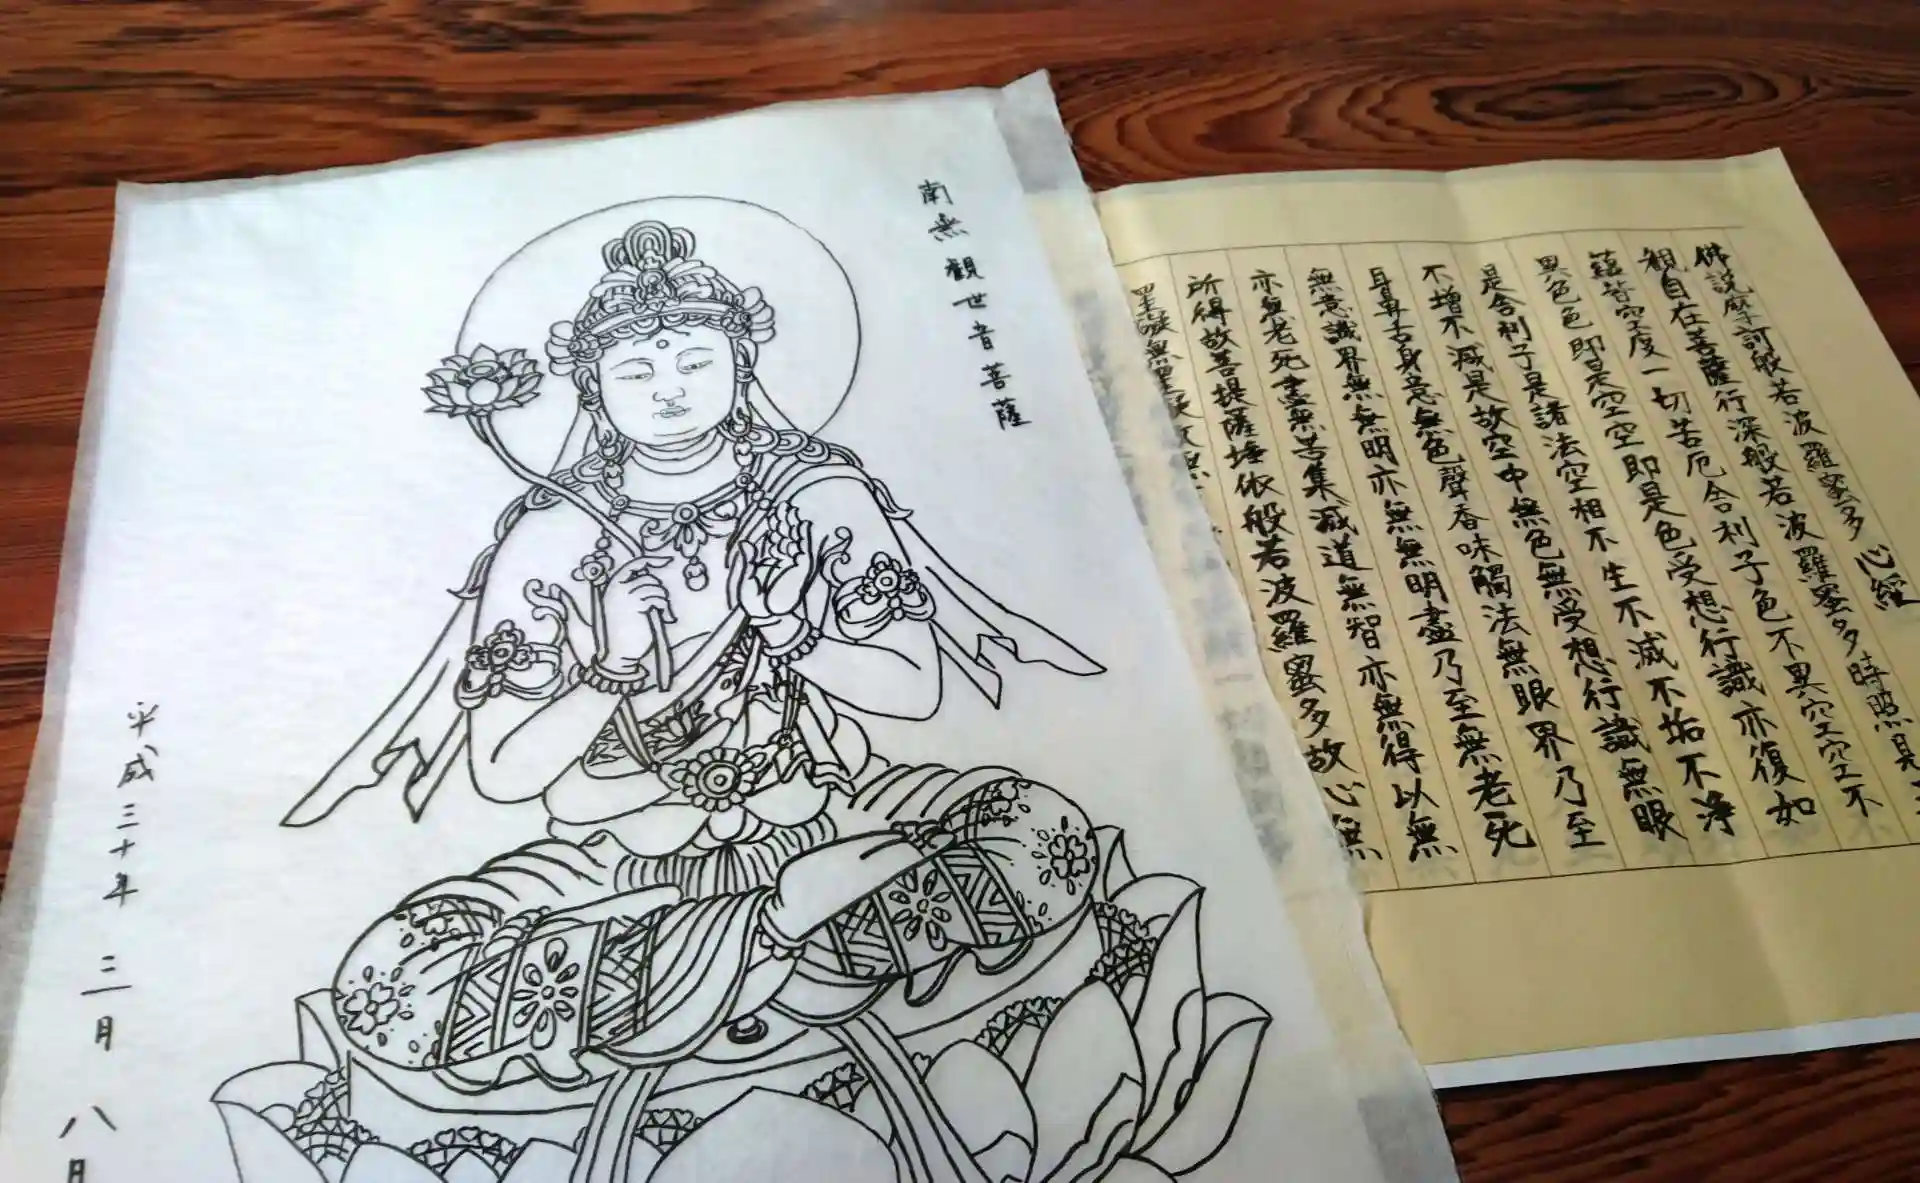 南無観世音菩薩
平成三十年 二月 八日
佛説摩訶般若波羅蜜多心經
観自在菩薩行深般若波羅蜜多時照見
蘊皆空度一切苦厄舎利子色不異空空不
異色色即是空空即是色受想行識亦復如
是舎利子是諸法空相不生不滅不垢不淨
不増不減是故空中無色無受想行識無眼
耳鼻舌身意無色聲香味觸法無眼界乃至
無意識界無無明亦無無明盡乃至無老死
亦無老死盡無苦集滅道無智亦無得以無
所得故菩提薩埵依般若波羅蜜多故心無
罣礙無罣礙故無